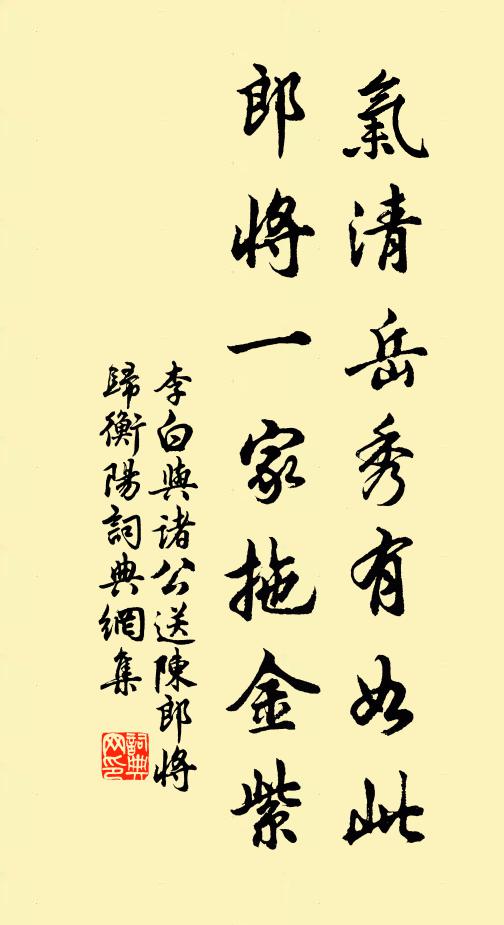 氣清岳秀有如此
郎將一家拖金紫
李白與诸公送陳郎將
歸衡陽詞典網集
詞典
网印